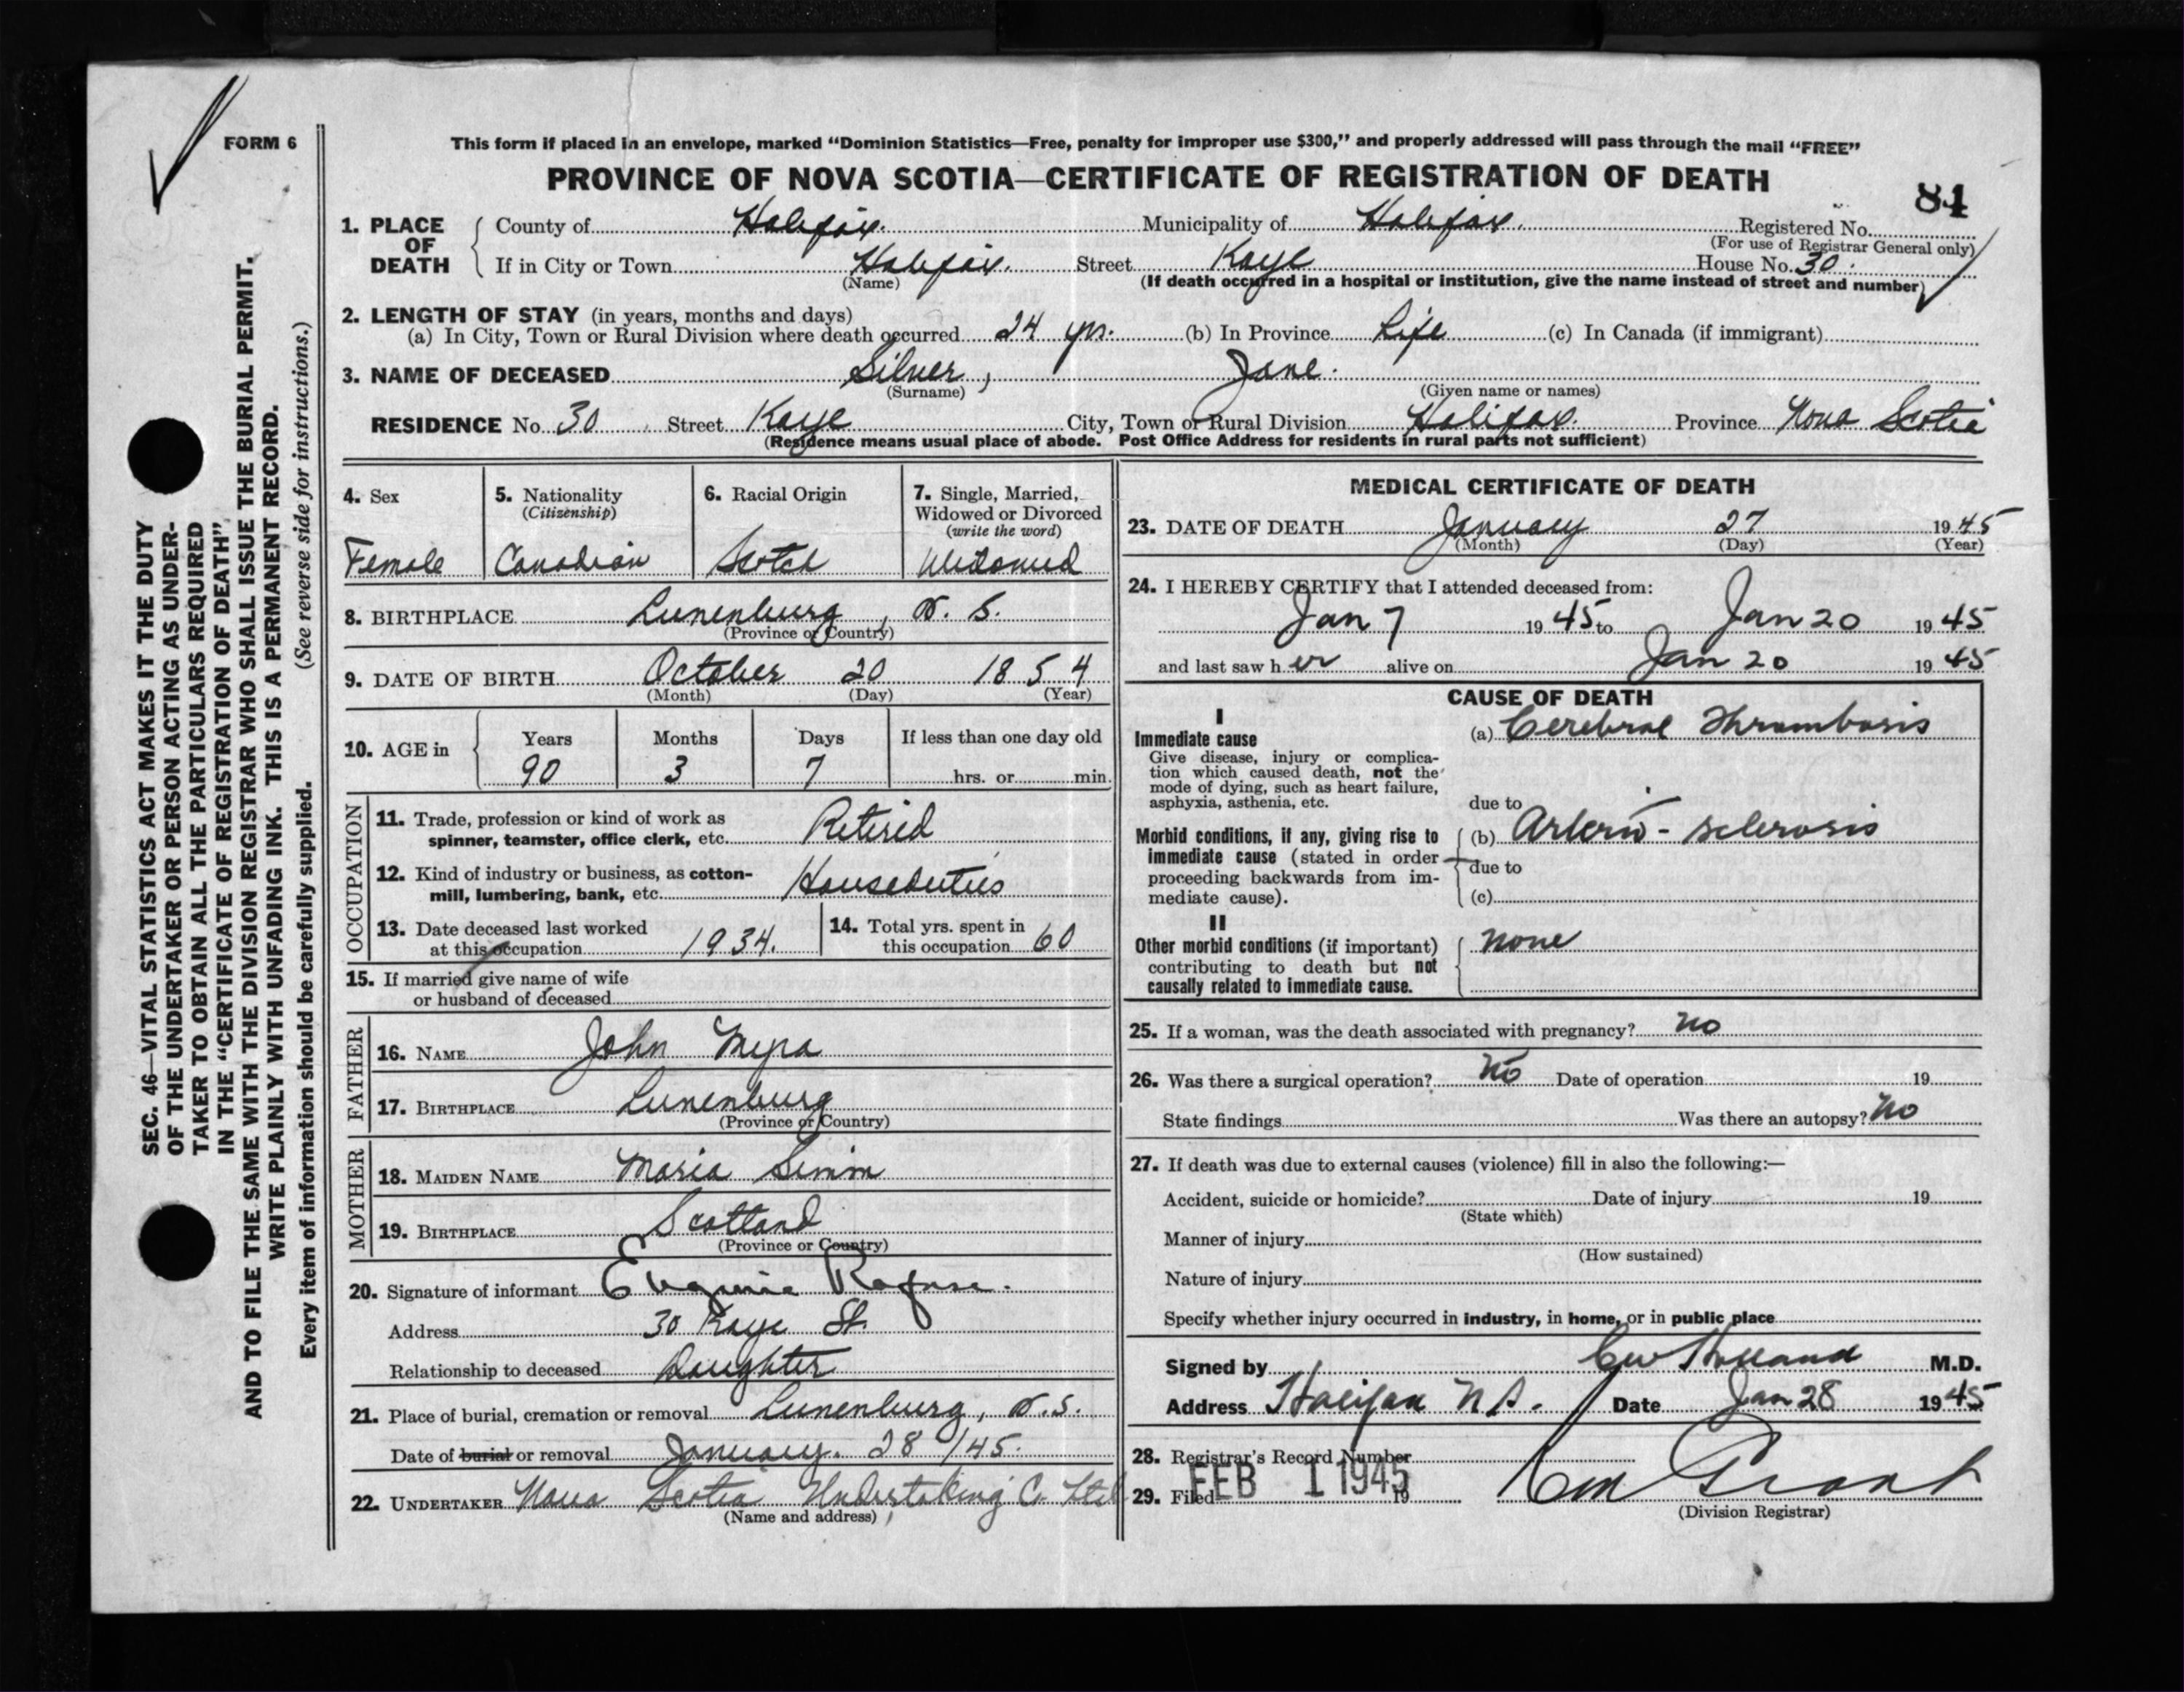 FORM 6
This form if placed in an envelope, marked “Dominion Statistics—Free, penalty for improper use $300,” and properly addressed will pass through the mail “FREE”
PROVINCE OF NOVA SCOTIA—CERTIFICATE OF REGISTRATION OF DEATH
84
1. PLACE OF DEATH
County of Halifax. Municipality of Halifax. Registered No.
(For use of Registrar General only)
If in City or Town Halifax. Street Kaye House No. 30.
(Name) (If death occurred in a hospital or institution, give the name instead of street and number)
2. LENGTH OF STAY (in years, months and days)
(a) In City, Town or Rural Division where death occurred 24 yrs. (b) In Province Life (c) In Canada (if immigrant)
3. NAME OF DECEASED Silver, Jane.
(Surname) (Given name or names)
RESIDENCE No. 30 Street Kaye City, Town or Rural Division Halifax. Province Nova Scotia
(Residence means usual place of abode. Post Office Address for residents in rural parts not sufficient)
4. Sex
Female
5. Nationality
(Citizenship)
Canadian
6. Racial Origin
Scotch
7. Single, Married,
Widowed or Divorced
(write the word)
Widowed
8. BIRTHPLACE Lunenburg, N. S.
(Province or Country)
9. DATE OF BIRTH October 20 1854
(Month) (Day) (Year)
10. AGE in
Years Months Days If less than one day old
90 3 7 hrs. or min.
OCCUPATION
11. Trade, profession or kind of work as
spinner, teamster, office clerk, etc. Retired
12. Kind of industry or business, as cotton-
mill, lumbering, bank, etc. Houseduties
13. Date deceased last worked
at this occupation 1934.
14. Total yrs. spent in
this occupation 60
15. If married give name of wife
or husband of deceased
FATHER
16. NAME John Myra
17. BIRTHPLACE Lunenburg
(Province or Country)
MOTHER
18. MAIDEN NAME Maria
19. BIRTHPLACE Scotland
(Province or Country)
20. Signature of informant Eugenie Rafuse.
Address 30 Kaye St.
Relationship to deceased Daughter
21. Place of burial, cremation or removal Lunenburg, N.S.
Date of burial or removal January. 28/45.
22. UNDERTAKER Nova Scotia Undertaking Co Ltd
(Name and address)
MEDICAL CERTIFICATE OF DEATH
23. DATE OF DEATH January 27 1945
(Month) (Day) (Year)
24. I HEREBY CERTIFY that I attended deceased from:
Jan 7 1945 to Jan 20 1945
and last saw her alive on Jan 20 1945
CAUSE OF DEATH
I
Immediate cause
Give disease, injury or complica-
tion which caused death, not the
mode of dying, such as heart failure,
asphyxia, asthenia, etc.
(a) Cerebral Thrombosis
due to
Morbid conditions, if any, giving rise to
immediate cause (stated in order
proceeding backwards from im-
mediate cause).
(b) Arterio-sclerosis
due to
(c)
II
Other morbid conditions (if important)
contributing to death but not
causally related to immediate cause.
none
25. If a woman, was the death associated with pregnancy? no
26. Was there a surgical operation? no Date of operation 19
State findings Was there an autopsy? no
27. If death was due to external causes (violence) fill in also the following:—
Accident, suicide or homicide? Date of injury 19
(State which)
Manner of injury
(How sustained)
Nature of injury
Specify whether injury occurred in industry, in home, or in public place
Signed by Holland M.D.
Address Halifax N.S. Date Jan 28 1945
28. Registrar's Record Number
29. Filed FEB 1 1945 19 Grant
(Division Registrar)
SEC. 46—VITAL STATISTICS ACT MAKES IT THE DUTY
OF THE UNDERTAKER OR PERSON ACTING AS UNDER-
TAKER TO OBTAIN ALL THE PARTICULARS REQUIRED
IN THE “CERTIFICATE OF REGISTRATION OF DEATH”
AND TO FILE THE SAME WITH THE DIVISION REGISTRAR WHO SHALL ISSUE THE BURIAL PERMIT.
WRITE PLAINLY WITH UNFADING INK. THIS IS A PERMANENT RECORD.
Every item of information should be carefully supplied. (See reverse side for instructions.)